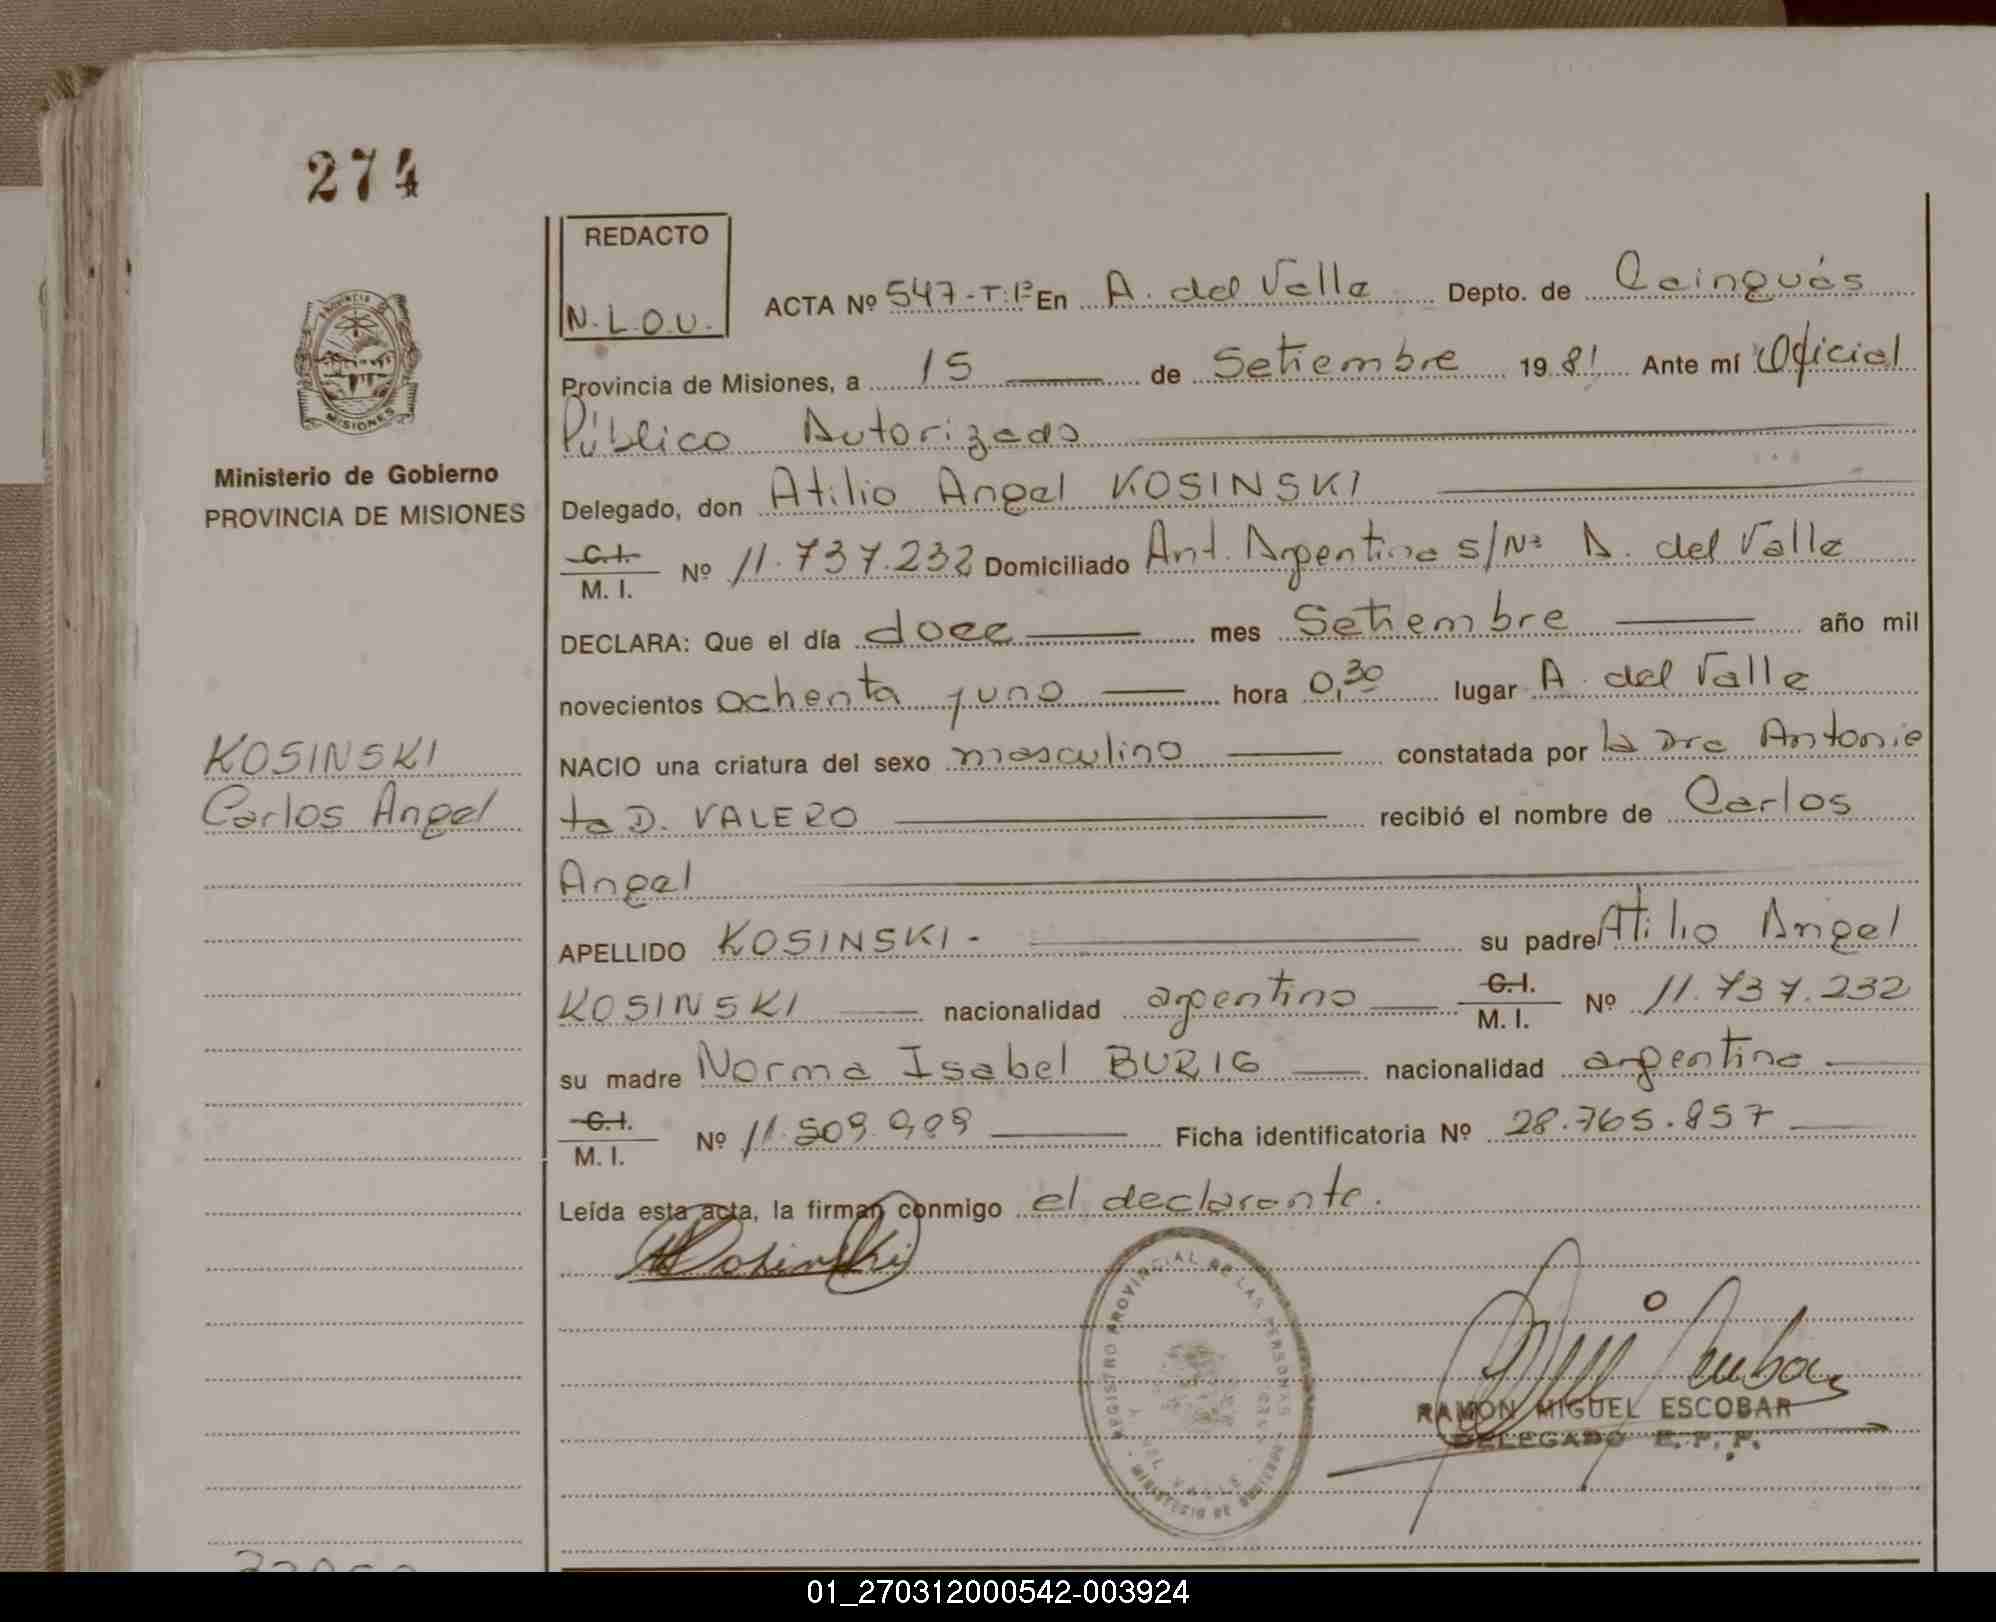 274
REDACTO
N.L.O.U.
ACTA Nº 547-T:1º En A. del Valle Depto. de Cainguás
Provincia de Misiones, a 15 de Setiembre 1981 Ante mí Oficial
Público Autorizado
PROVINCIA DE
MISIONES
Ministerio de Gobierno
PROVINCIA DE MISIONES
Delegado, don Atilio Angel KOSINSKI
C.I.
M. I. Nº 11.737.232 Domiciliado Ant. Argentina s/Nº A. del Valle
DECLARA: Que el día doce mes Setiembre año mil
novecientos ochenta y uno hora 0,30 lugar A. del Valle
KOSINSKI
Carlos Angel
NACIO una criatura del sexo masculino constatada por la Dra Antonie
ta D. VALERO recibió el nombre de Carlos
Angel
APELLIDO KOSINSKI- su padre Atilio Angel
KOSINSKI nacionalidad argentino C.I. M. I. Nº 11.737.232
su madre Norma Isabel BURIG nacionalidad argentina
C.I.
M. I. Nº 11.509.909 Ficha identificatoria Nº 28.765.857
Leída esta acta, la firman conmigo el declarante.
Kosinski
REGISTRO PROVINCIAL DE LAS PERSONAS
DEL VALLE
RAMON MIGUEL ESCOBAR
DELEGADO E. P. P.
01_270312000542-003924